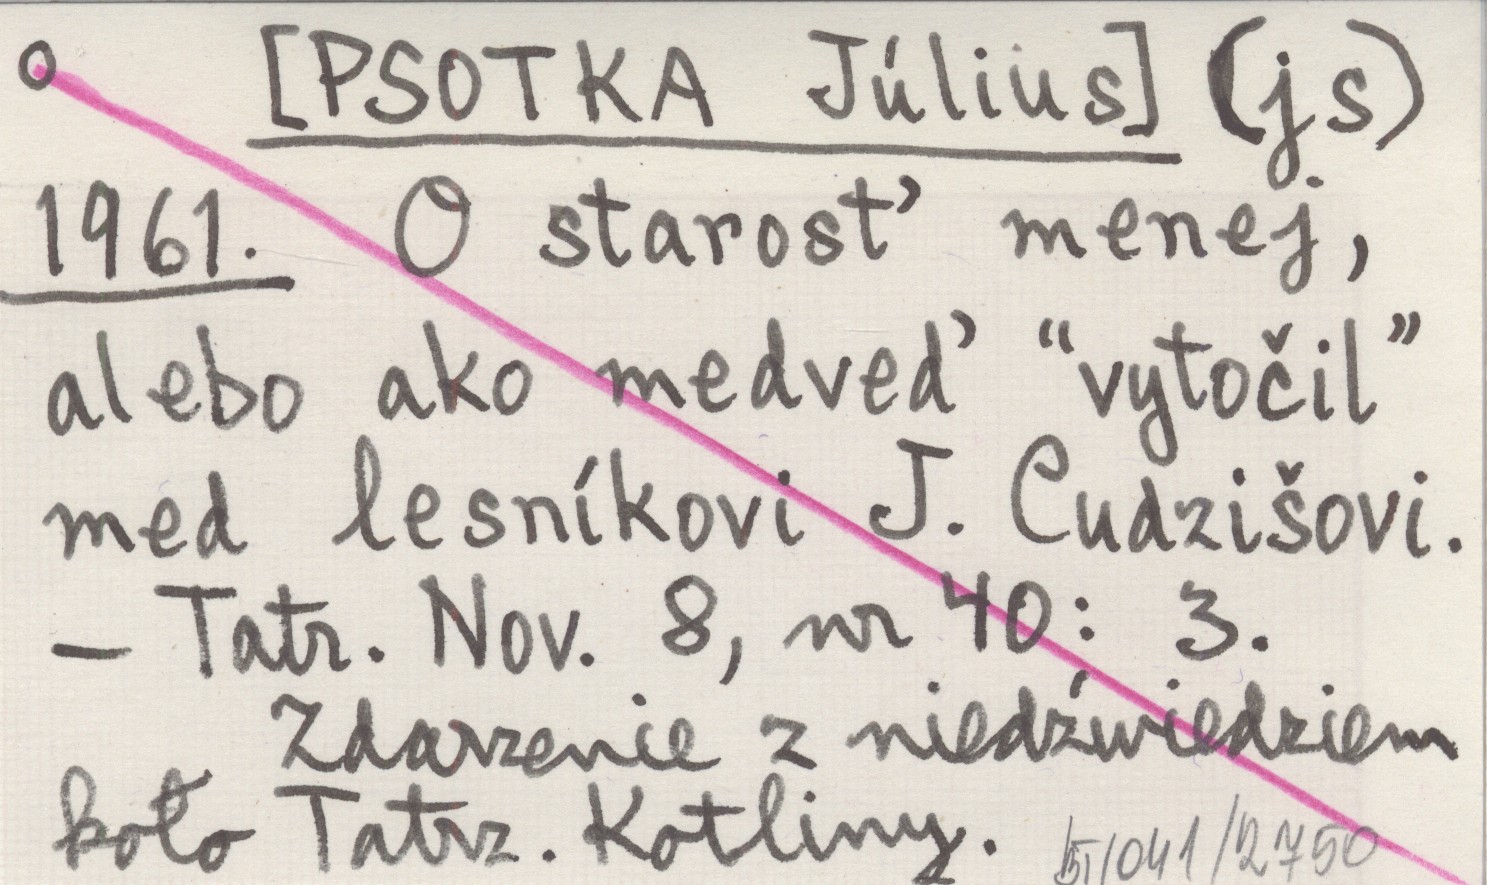 o [PSOTKA Július] (js)
1961. O starosť menej,
alebo ako medveď “vytočil”
med lesníkovi J. Cudzišovi.
– Tatr. Nov. 8, nr 40: 3.
Zdarzenie z niedźwiedziem
koło Tatrz. Kotliny.
/041/2750